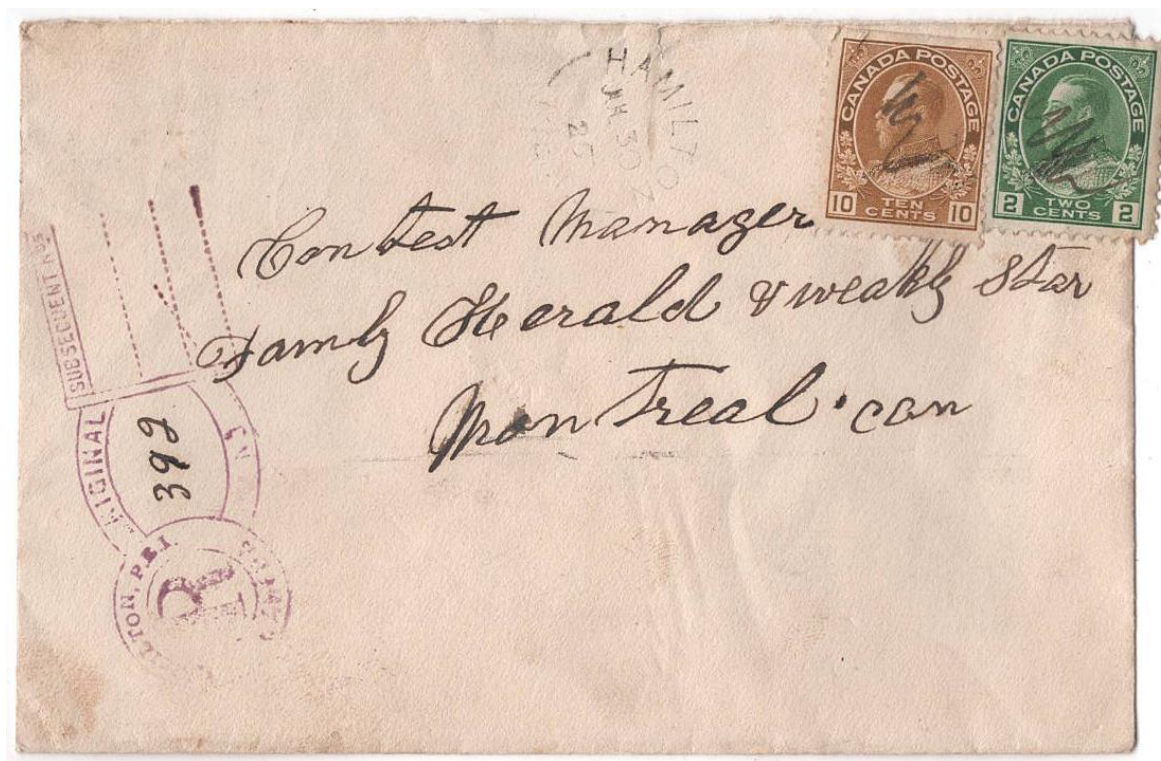 HAMILTO
JA 30
20
CANADA POSTAGE
10 TEN CENTS 10
CANADA POSTAGE
2 TWO CENTS 2
Contest Manager
Famly Herald & weakly Star
Montreal. can
SUBSECUENT NOS
RIGINAL
399
LTON, P.E.I
R